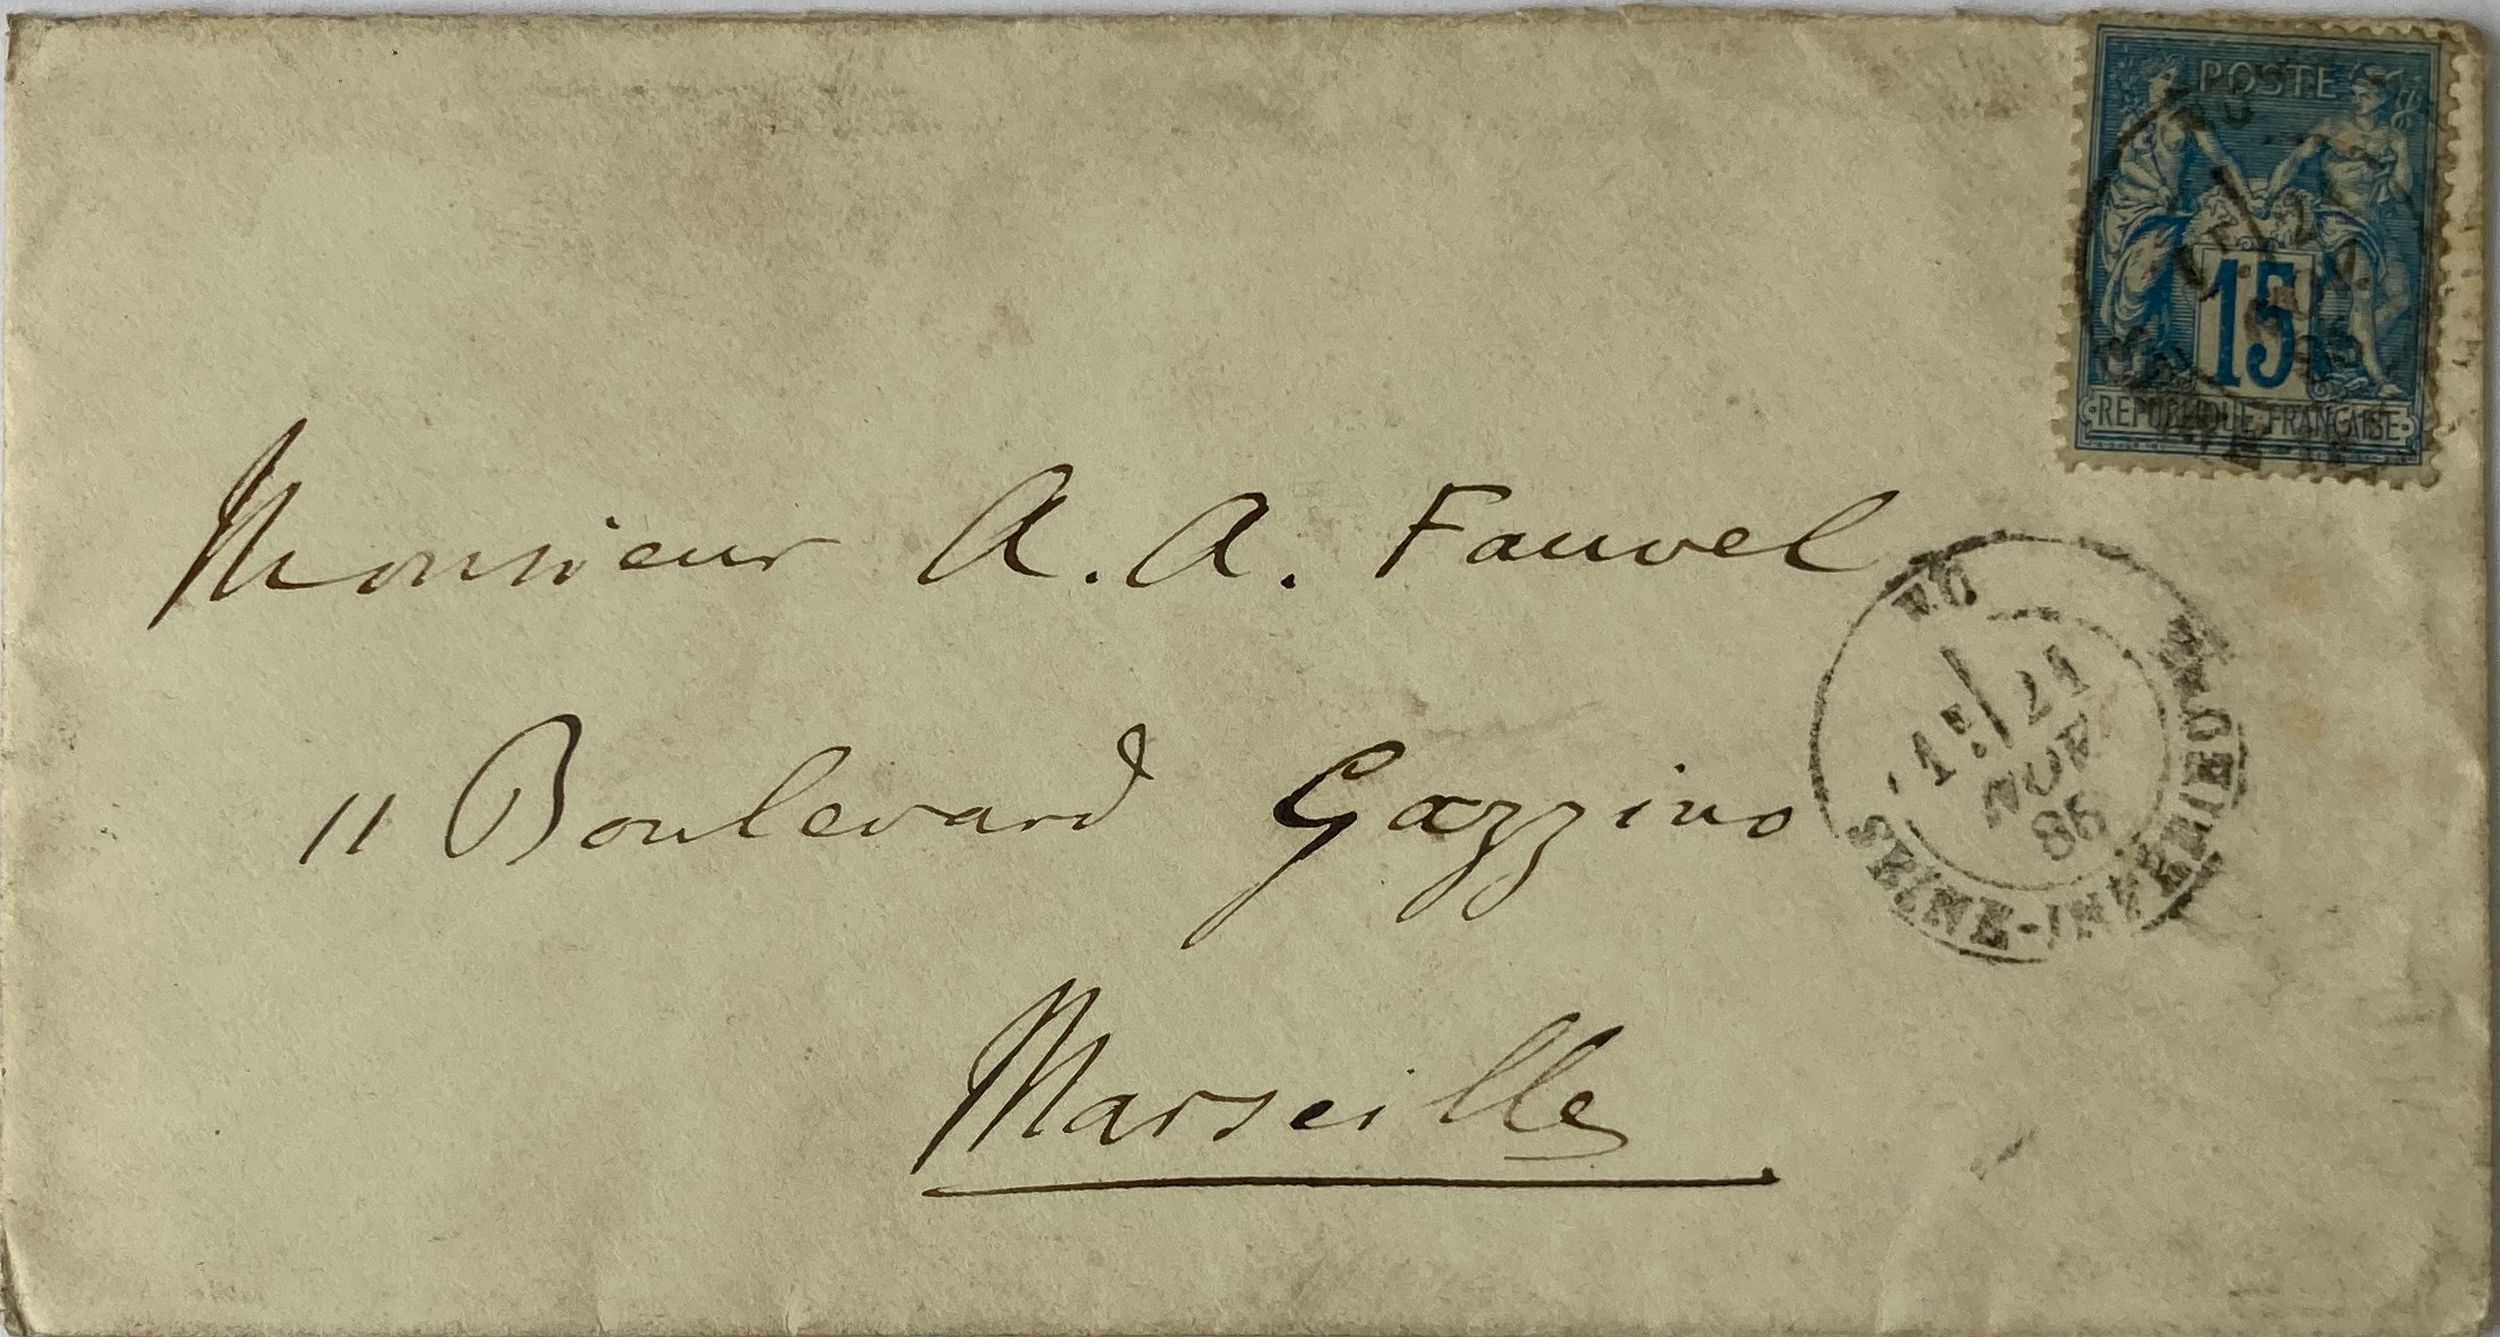 POSTE
15
REPUBLIQUE FRANCAISE
Monsieur A. A. Fauvel
11 Boulevard Gazzino
Marseille
1E / 21
NOV
SEINE-INFÉRIEURE